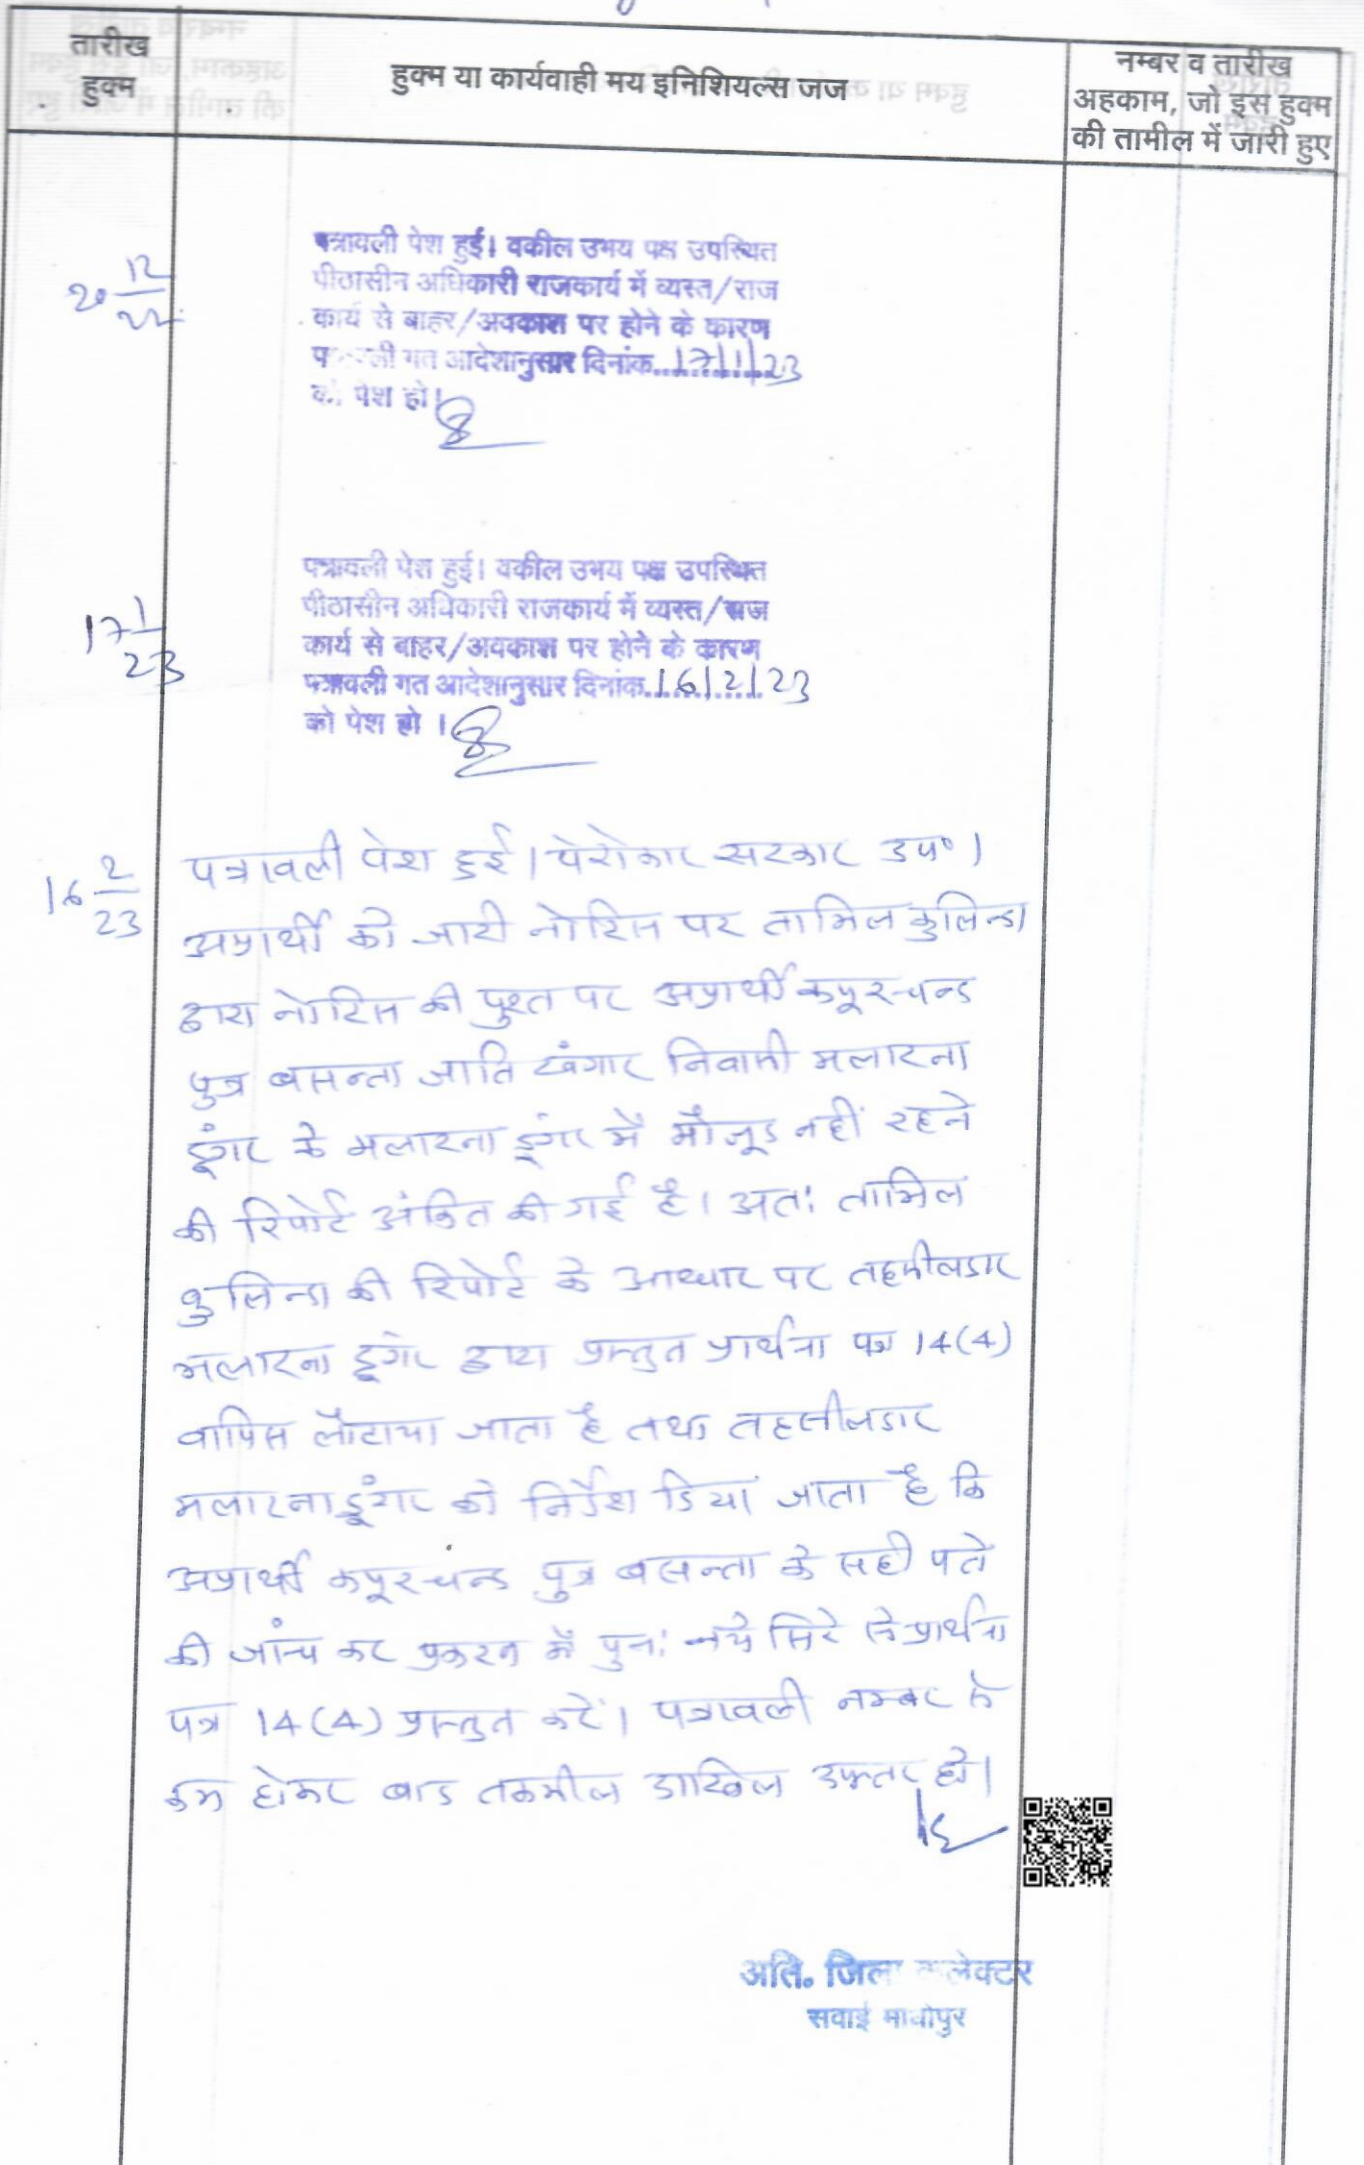 तारीख
हुक्म
हुक्म या कार्यवाही मय इनिशियल्स जज
नम्बर व तारीख
अहकाम, जो इस हुक्म
की तामील में जारी हुए
20 12/22
पत्रावली पेश हुई। वकील उभय पक्ष उपस्थित
पीठासीन अधिकारी राजकार्य में व्यस्त/राज
कार्य से बाहर/अवकाश पर होने के कारण
पत्रावली गत आदेशानुसार दिनांक 17/1/23
को पेश हो।
17 1/23
पत्रावली पेश हुई। वकील उभय पक्ष उपस्थित
पीठासीन अधिकारी राजकार्य में व्यस्त/राज
कार्य से बाहर/अवकाश पर होने के कारण
पत्रावली गत आदेशानुसार दिनांक 16/2/23
को पेश हो ।
16 2/23
पत्रावली पेश हुई। पेरोकार सरकार उप०।
अप्रार्थी को जारी नोटिस पर तामिल कुलिन्दा
द्वारा नोटिस की पुश्त पर अप्रार्थी कपूरचन्द
पुत्र बसन्ता जाति खंगार निवासी मलारना
डूंगर के मलारना डूंगर में मौजूद नहीं रहने
की रिपोर्ट अंकित की गई है। अतः तामिल
कुलिन्दा की रिपोर्ट के आधार पर तहसीलदार
मलारना डूंगर द्वारा प्रस्तुत प्रार्थना पत्र 14(4)
वापिस लौटाया जाता है तथा तहसीलदार
मलारना डूंगर को निर्देश दिया जाता है कि
अप्रार्थी कपूरचंन्द पुत्र बसन्ता के सही पते
की जांच कर प्रकरण में पुनः नये सिरे से प्रार्थना
पत्र 14(4) प्रस्तुत करें। पत्रावली नम्बर से
कम होकर बाद तकमील दाखिल दफ्तर हो।
अति. जिला कलेक्टर
सवाई माधोपुर